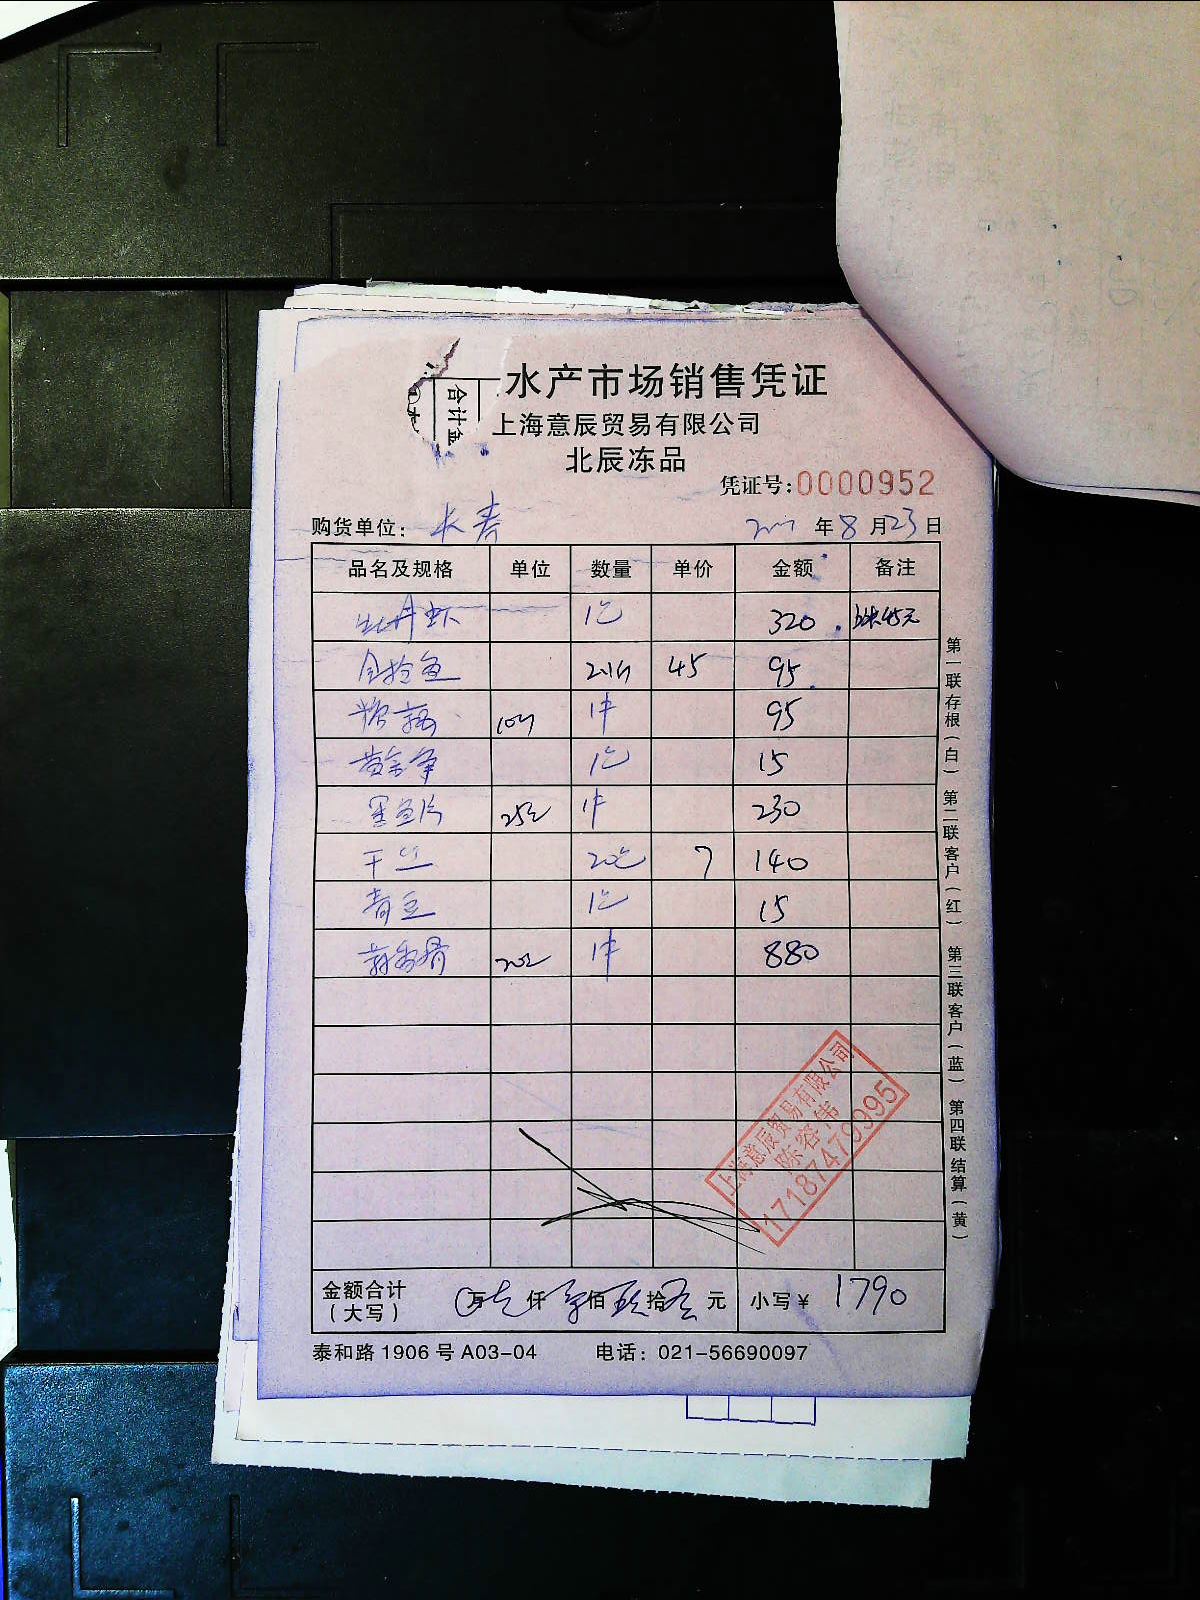 合计金
水产市场销售凭证
上海意辰贸易有限公司
北辰冻品
凭证号:0000952
购货单位: 长春 年 8 月 23 日
品名及规格 单位 数量 单价 金额 备注
牡丹虾 1包 320
金抢鱼 45 95
1件 95
黄金 1包 15
墨鱼片 1件 230
干丝 20包 7 140
青豆 1包 15
1件 880
上海意辰贸易有限公司
陈容伟
17187479995
金额合计(大写) 万 仟 佰 玖 拾 元 小写¥ 1790
泰和路1906号A03-04 电话: 021-56690097
第一联存根(白) 第二联客户(红) 第三联客户(蓝) 第四联结算(黄)